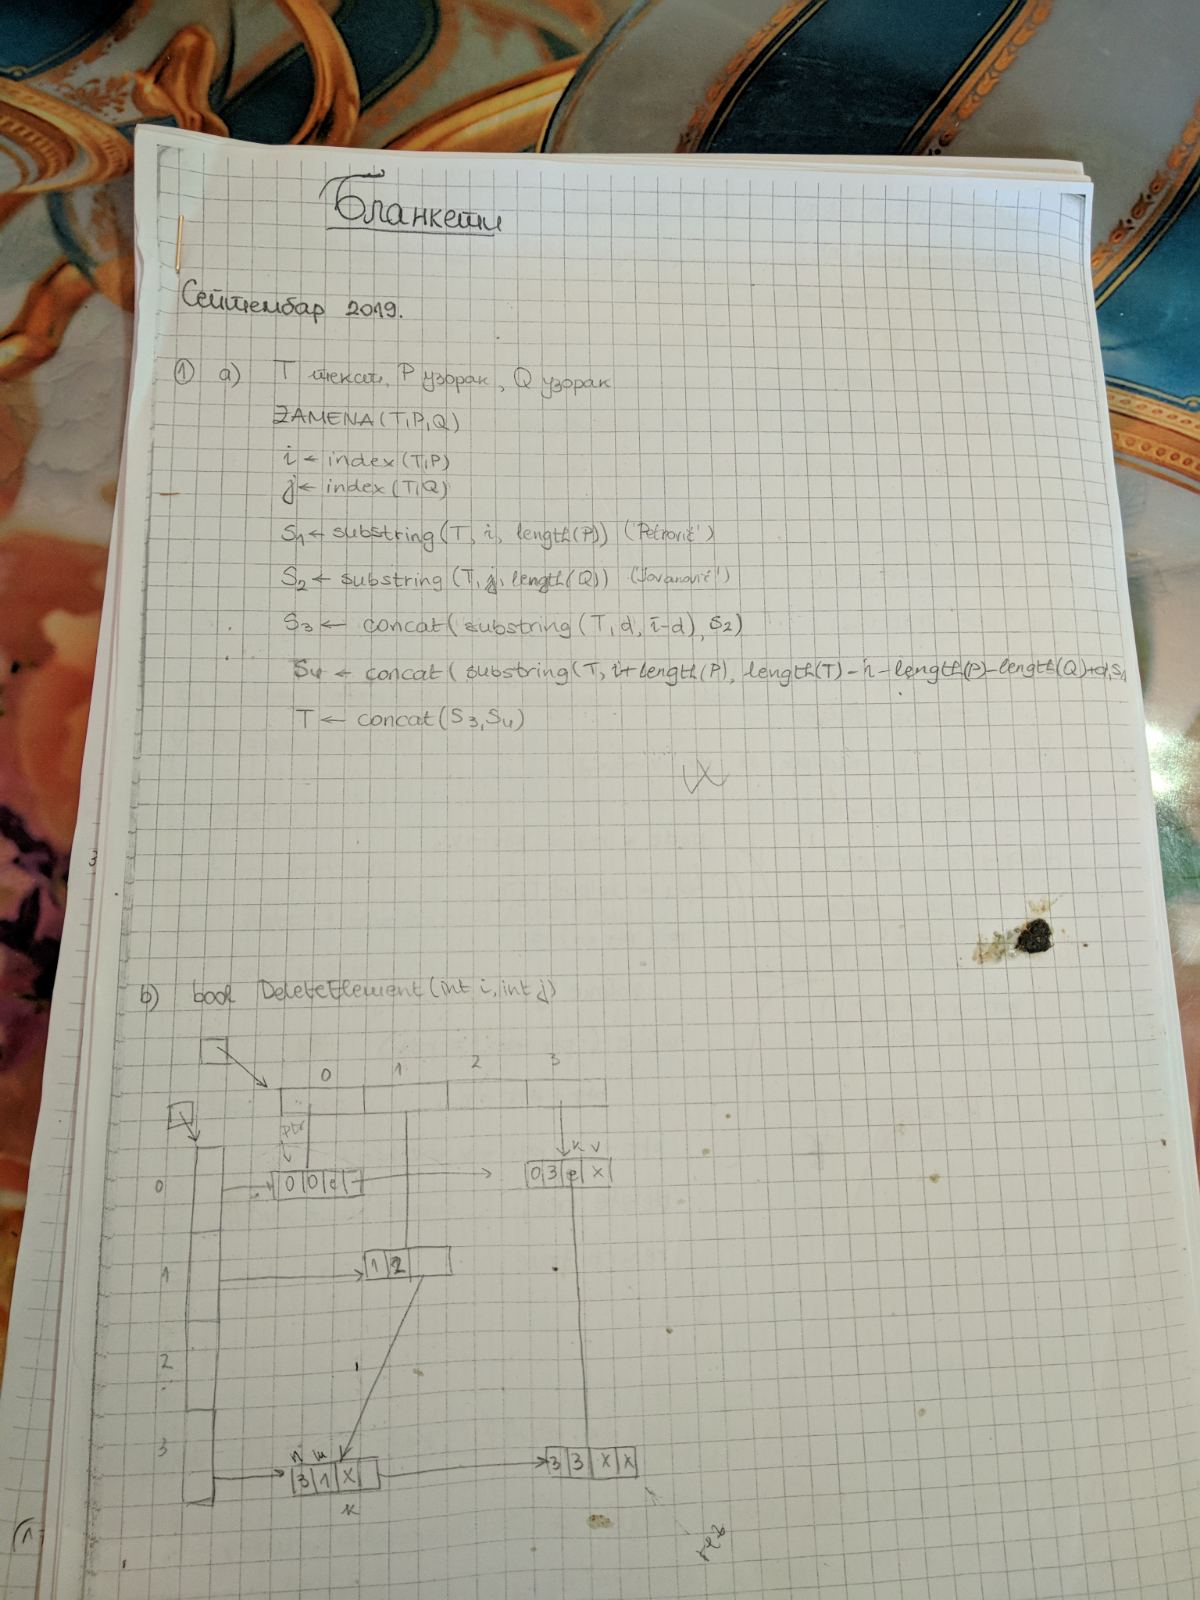 Бланкети
Септембар 2019.
① а) Т текст, P узорак, Q узорак
ZAMENA(T,P,Q)
i ← index(T,P)
j ← index(T,Q)
S1 ← substring(T, i, length(P)) ('Petrović')
S2 ← substring(T, j, length(Q)) ('Jovanović')
S3 ← concat(substring(T, d, i-d), S2)
S4 ← concat(substring(T, i+length(P), length(T)-i-length(P)-length(Q)+d, S1
T ← concat(S3, S4)
3
b) bool DeleteElement(int i, int j)
0 1 2 3
ptr
K V
0 0 0 e 0 3 e X
1 1 2
2
3 3 1 X 3 3 X X
K